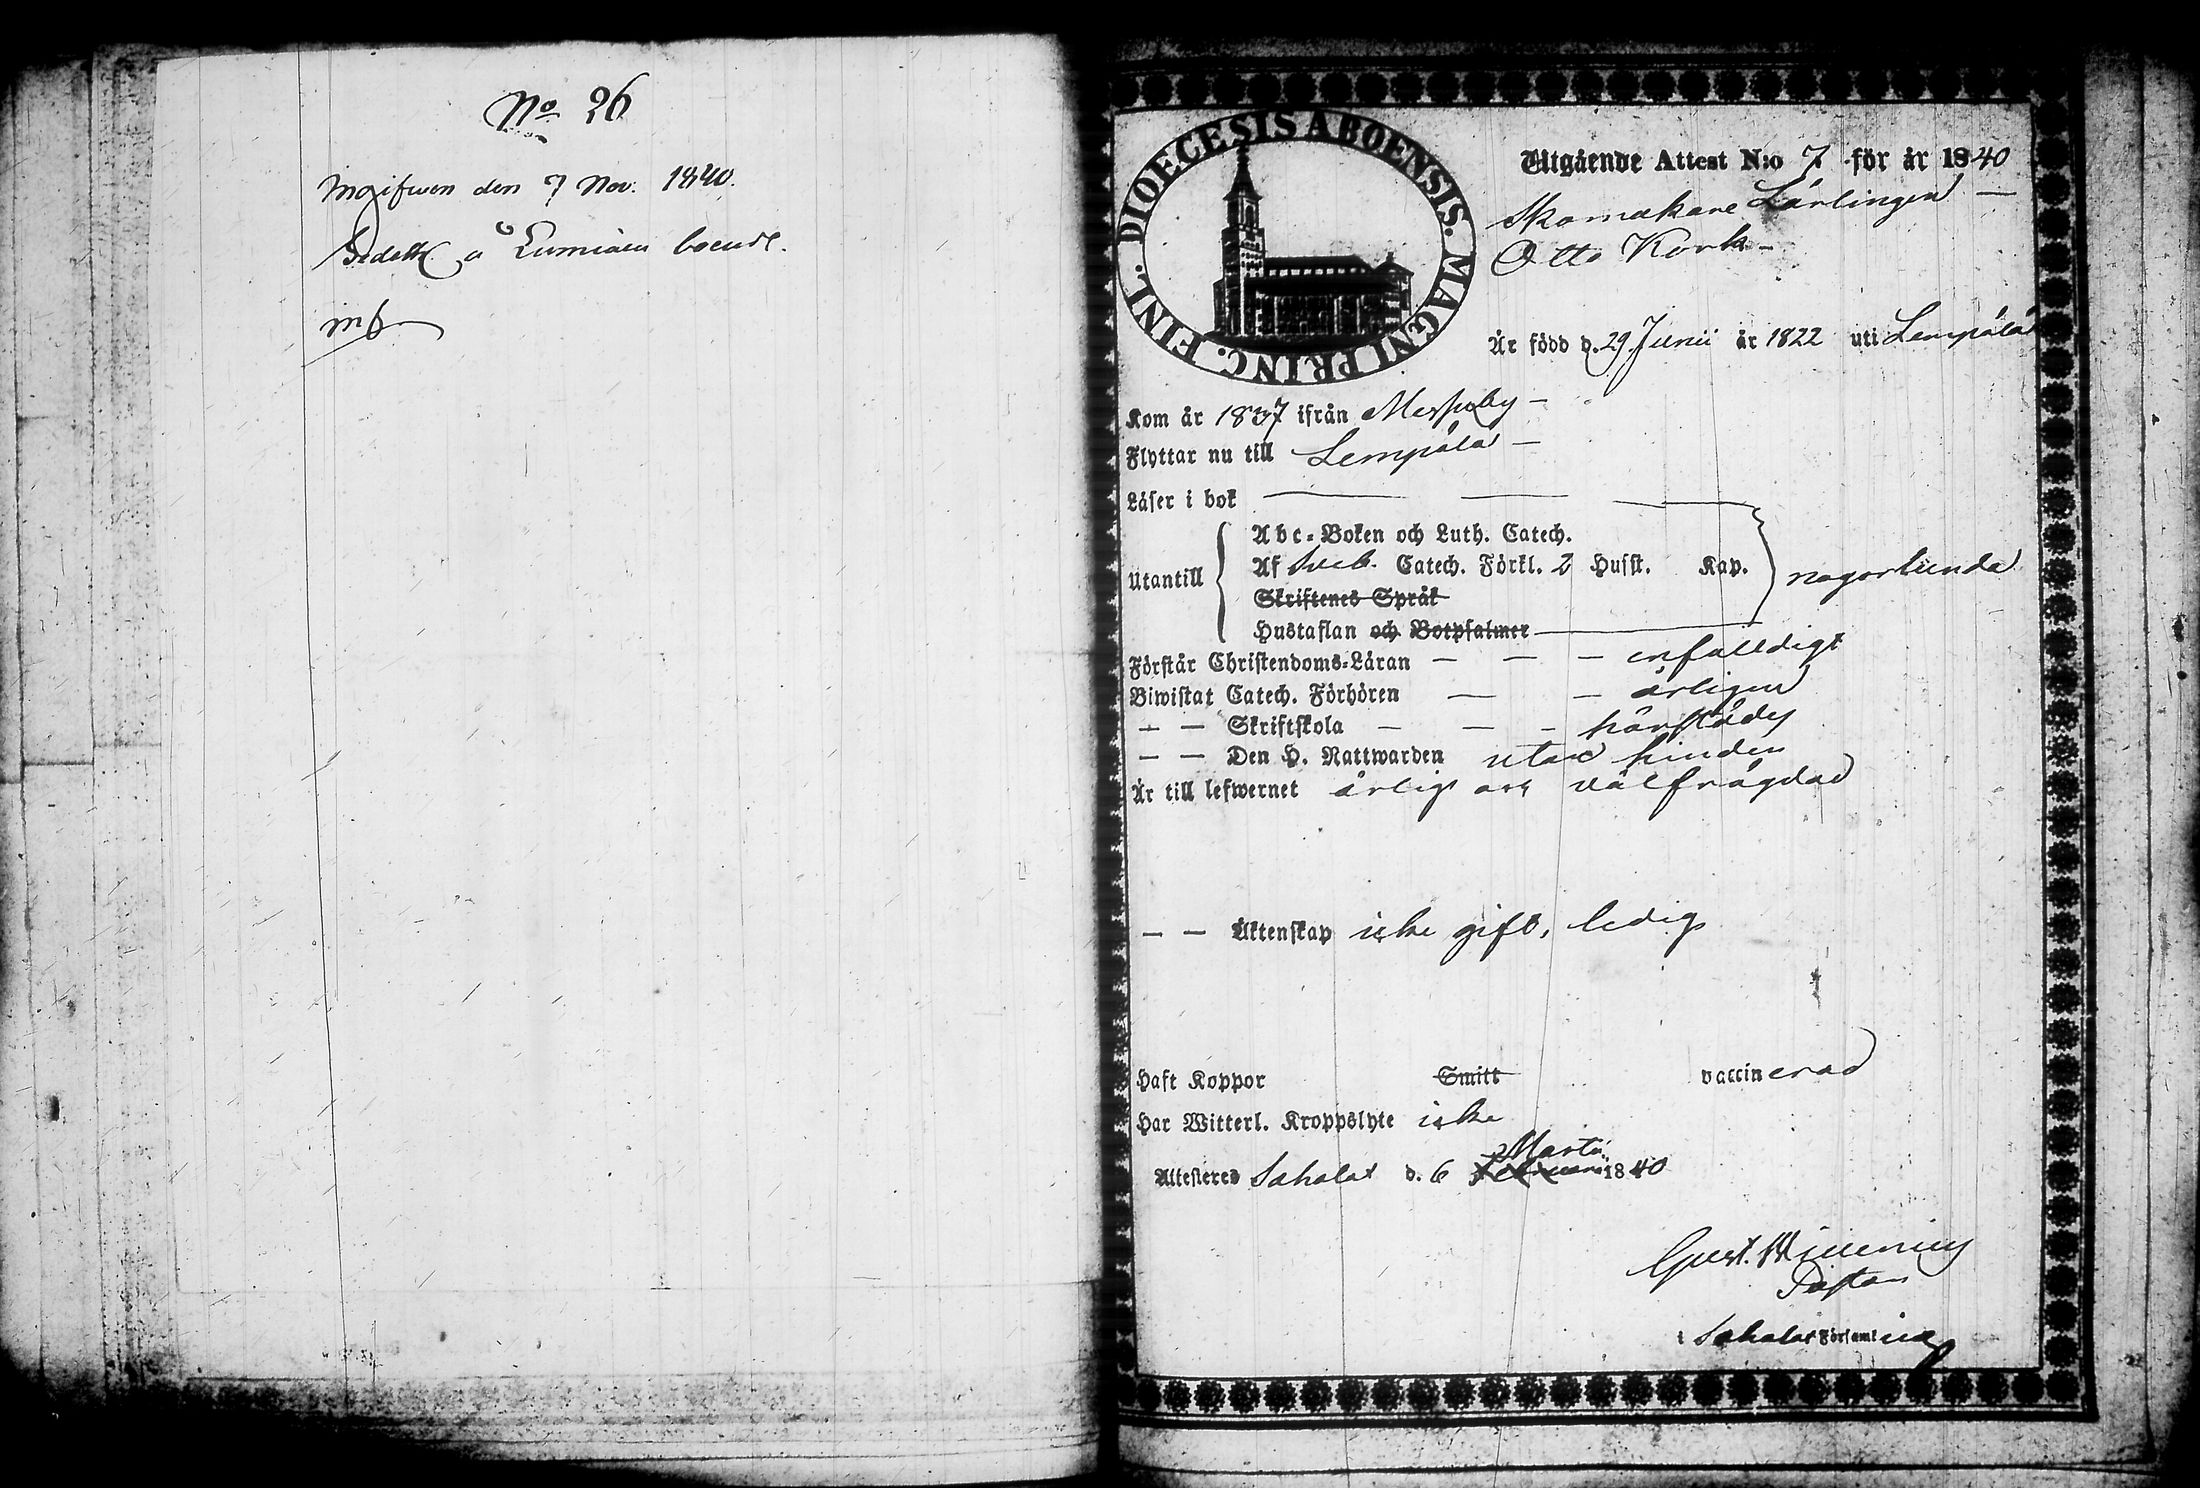 No 26
Ingifwen den 7 Nov. 1840.
å Lumiäis boende.
DIOECESIS ABOENSIS. MAGNI PRINC. FINL.
Utgående Attest N:o 7 för år 1840
Skomakare Lärlingen
Otto Kork
Är född d. 29 Junii år 1822 uti Lempälä
Kom år 1837 ifrån Messuby
Flyttar nu till Lempälä
Läser i bok
Utantill
Abc-Boken och Luth. Catech.
Af Sveb. Catech. Förkl. 2 Husst. Kap.
någorlunda
Skriftenes Språk
Hustaflan och Botpsalmer
Förstår Christendoms-Läran — — — enfalldigt
Biwistat Catech. Förhören — — årligen
— — Skriftskola — — — härstädes
— — Den H. Nattwarden utan hinder
Är till lefwernet ärlig och välfrägdad
— — Äktenskap icke gift, ledig
Haft Koppor Smitt vaccinerad
Har Witterl. Kroppslyte icke
Martii
Attesteres Sahalax d. 6 Februarii 1840
Gust. 
Pastor
i Sahalax Församling